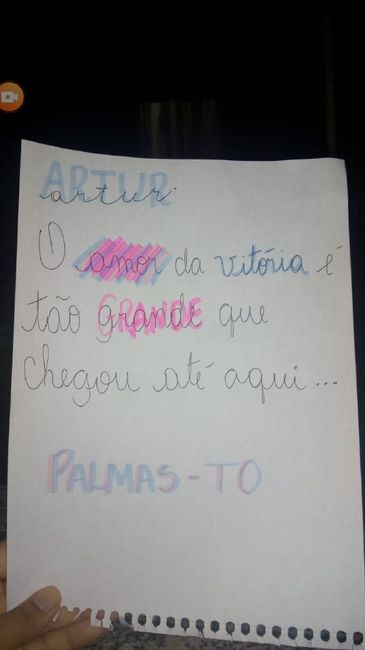 ARTUR
artur:
O amor da vitória é
tão grande que
GRANDE
chegou até aqui...
PALMAS-TO